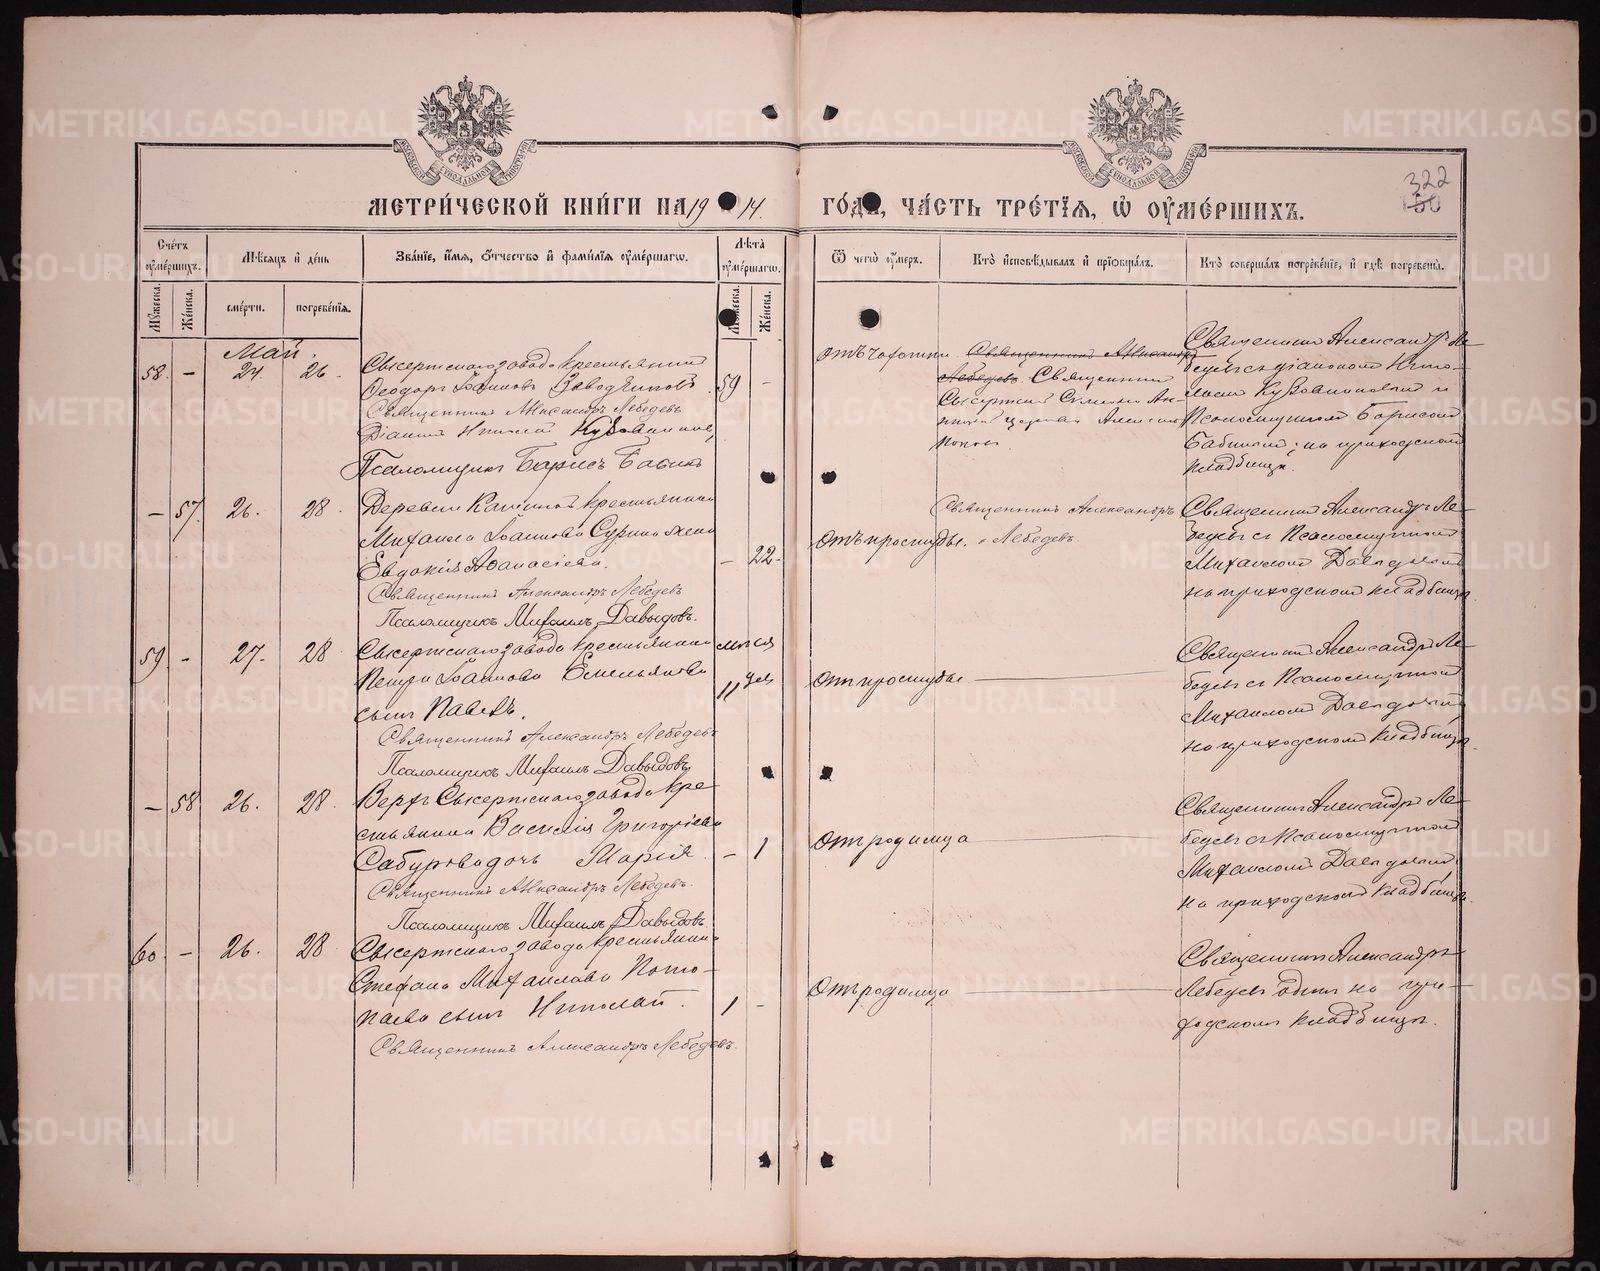 322
МЕТРИ́ЧЕСКОЙ КНИ́ГИ НА 19 14. ГО́ДЪ, ЧА́СТЬ ТРЕ́ТІѦ, Ѡ ОУМЕ́РШИХЪ.
Сче́тъ оуме́ршихъ.
Мѣ́сѧцъ и҆ де́нь
Зва́нїе, и҆́мѧ, ѻ҆́тчество и҆ фами́лїѧ оуме́ршагѡ.
Лѣ́та оуме́ршагѡ.
Ѿ чегѡ̀ оу҆́меръ.
Кто̀ и҆сповѣ́дывалъ и҆ прїѡбща́лъ.
Кто̀ соверша́лъ погребе́нїе, и҆ гдѣ̀ погребены̀.
Мꙋ́жеска.
Же́нска.
сме́рти.
погребе́нїѧ.
Мꙋ́жеска.
Же́нска.
Май.
58. – 24. 26.
Сысертскаго завода крестьянинъ
Ѳеодоръ Іоанновъ
Священникъ Александръ Лебедевъ
Діаконъ Николай
Псаломщикъ Борисъ Бабинъ
59 –
отъ чахотки
Священникъ Александръ
Лебедевъ Священникъ
Священникъ Александръ Ле-
бедевъ съ діакономъ Нико-
лаемъ и
Псаломщикомъ Борисомъ
Бабинымъ; на приходскомъ
кладбищѣ.
– 57. 26. 28.
Деревни крестьянина
Михаила Іоаннова жена
Евдокія Аѳанасіева.
Священникъ Александръ Лебедевъ
Псаломщикъ Михаилъ Давыдовъ.
– 22.
отъ простуды.
Священникъ Александръ
Лебедевъ.
Священникъ Александръ Ле-
бедевъ съ Псаломщикомъ
Михаиломъ Давыдовымъ
на приходскомъ кладбищѣ.
59 – 27. 28
Сысертскаго завода крестьянина
Петра Іоаннова Емельянова
сынъ Павелъ.
Священникъ Александръ Лебедевъ
Псаломщикъ Михаилъ Давыдовъ
11
отъ простуды
Священникъ Александръ Ле-
бедевъ съ Псаломщикомъ
Михаиломъ Давыдовымъ
на приходскомъ кладбищѣ.
– 58 26. 28.
Верхъ Сысертскаго завода кре-
стьянина Василія Григорьева
Сабурова дочь Марія.
Священникъ Александръ Лебедевъ.
Псаломщикъ Михаилъ Давыдовъ.
– 1
отъ родимца
Священникъ Александръ Ле-
бедевъ съ Псаломщикомъ
Михаиломъ Давыдовымъ
на приходскомъ кладбищѣ.
60. – 26. 28
Сысертскаго завода крестьянина
Стефана Михаилова Пото-
паева сынъ Николай.
Священникъ Александръ Лебедевъ.
1 –
отъ родимца
Священникъ Александръ
Лебедевъ одинъ на при-
ходскомъ кладбищѣ.
METRIKI.GASO-URAL.RU